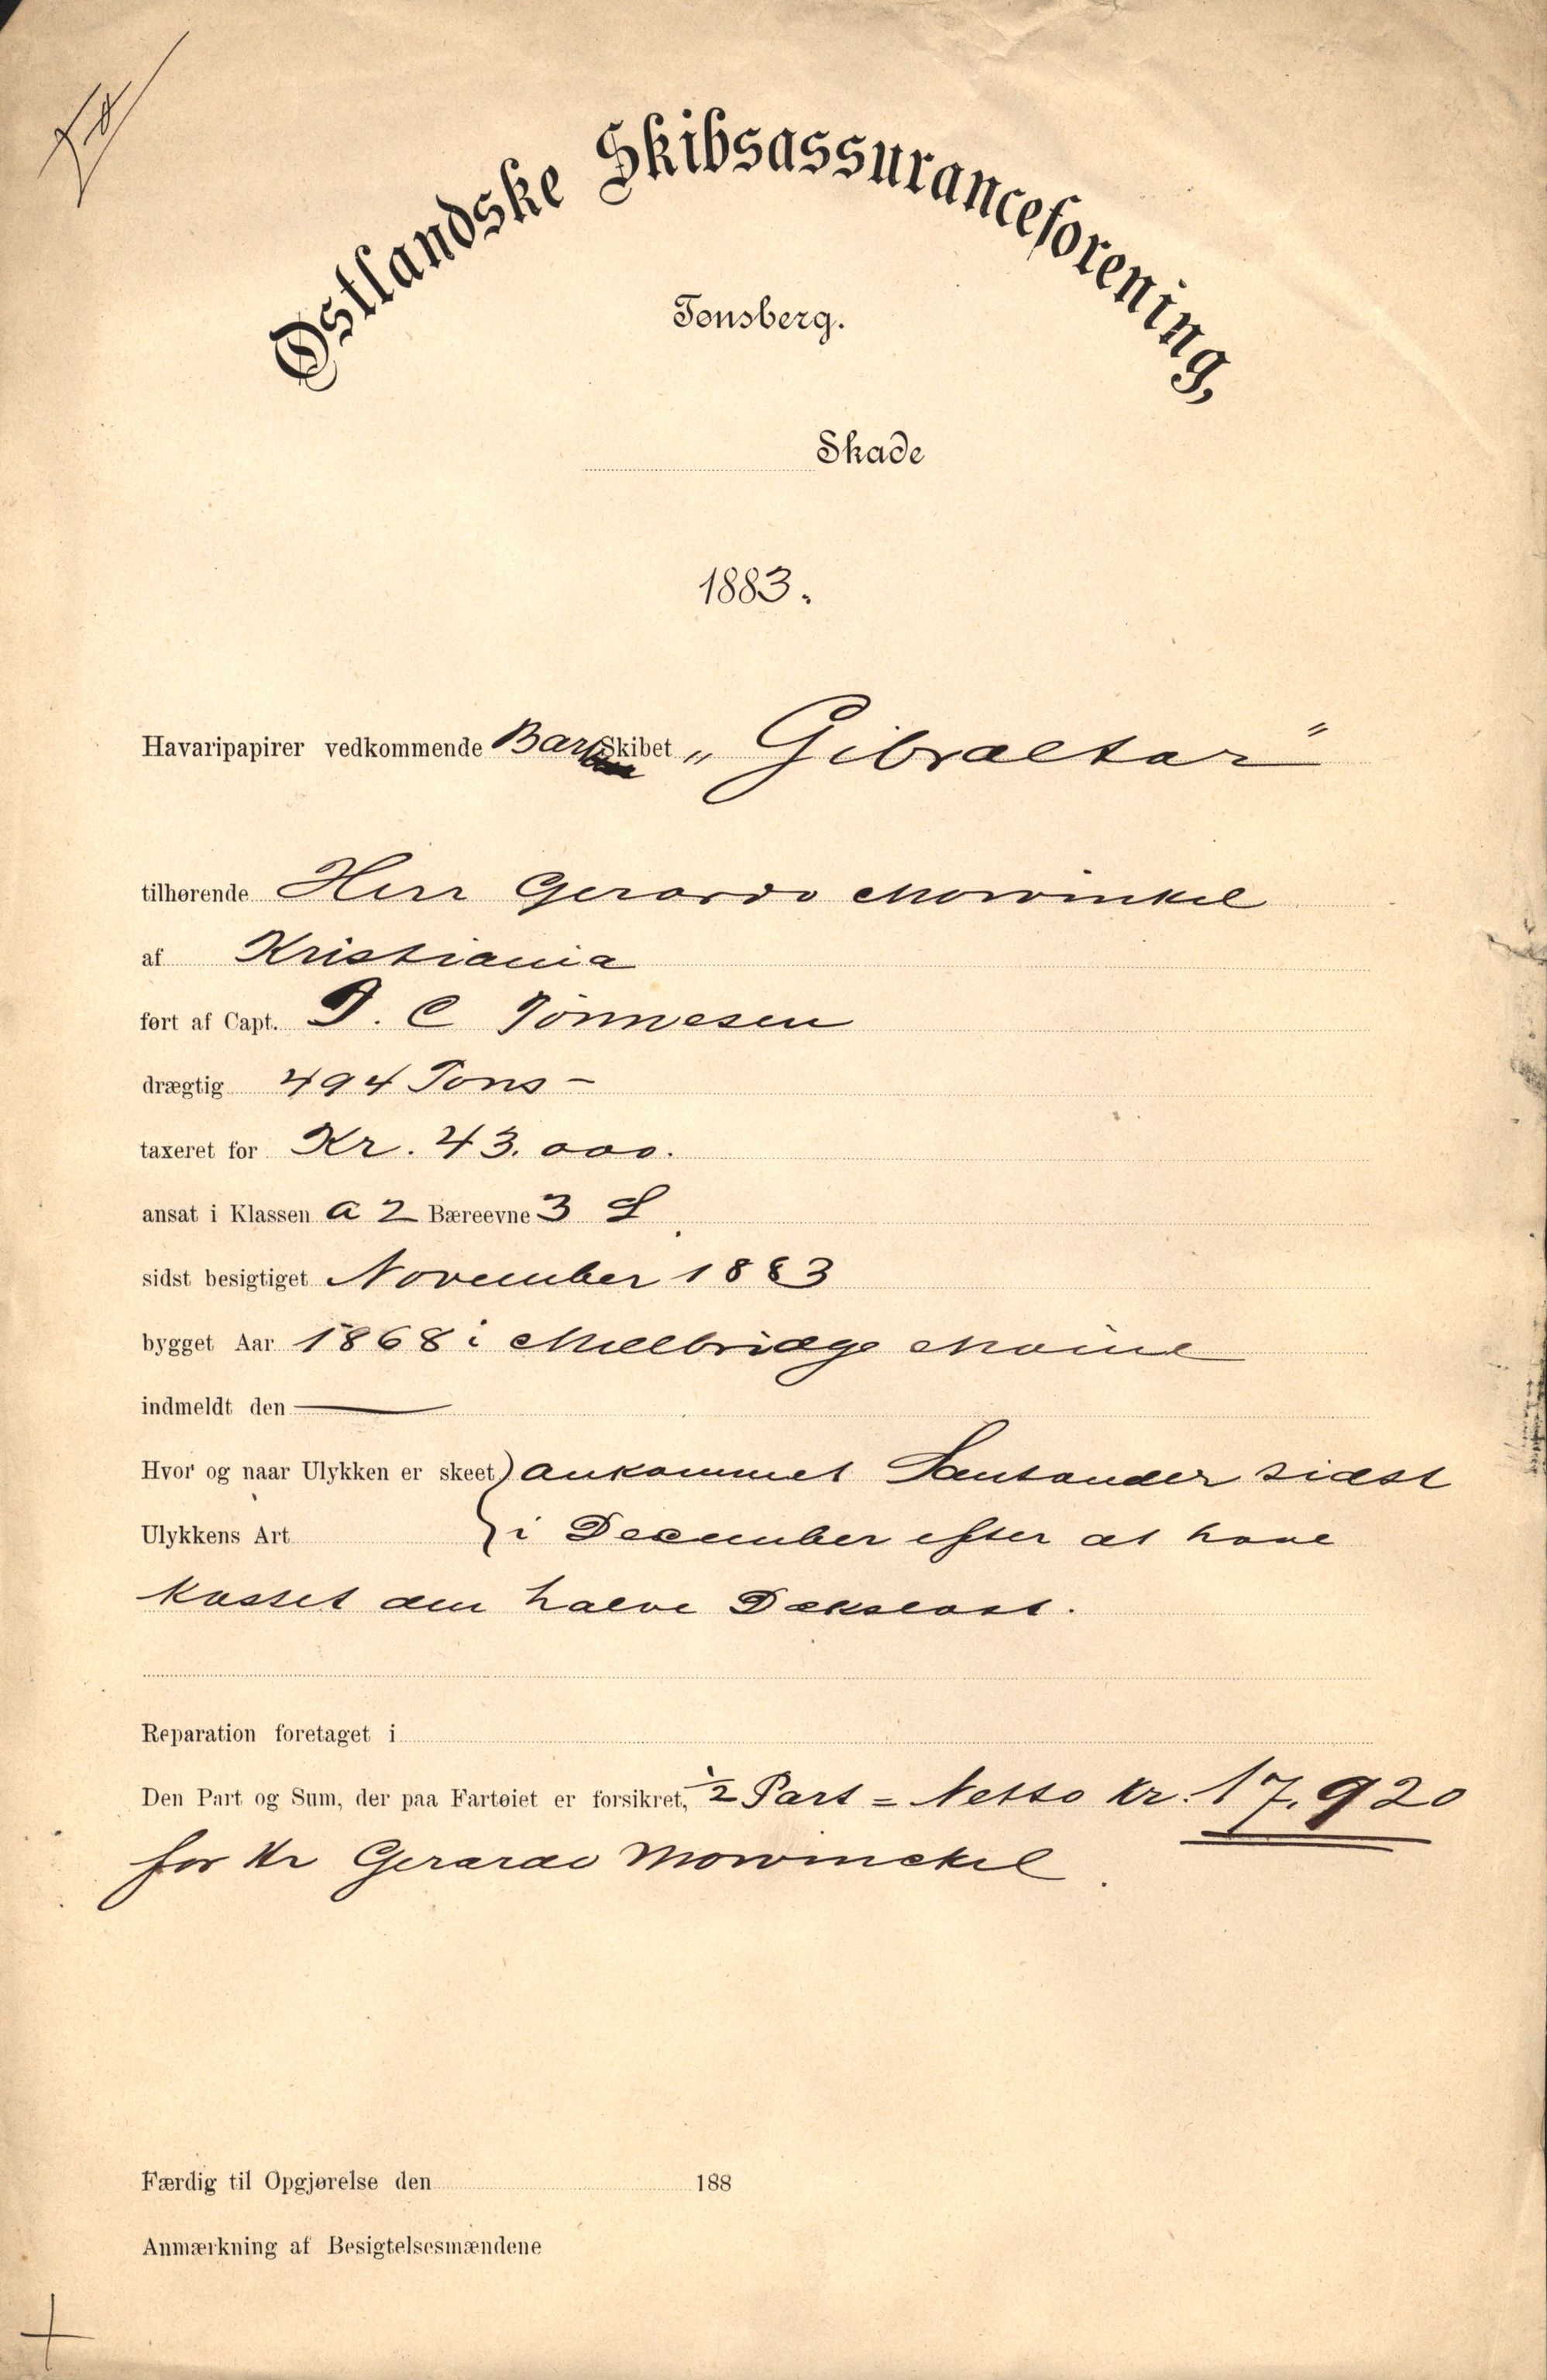 Østlandske Skibsassuranceforening,
Tønsberg.
Skade
1883.
Havaripapirer vedkommende Bark Skibet „Gibraltar"
tilhørende Herr Gerardo Mowinkel
af Kristiania
ført af Capt. T. C Tönnesen
drægtig 494 Tons –
taxeret for Kr. 43.000.
ansat i Klassen A 2 Bæreevne 3 L
sidst besigtiget November 1883
bygget Aar 1868 i Millbridge Maine
indmeldt den —
Hvor og naar Ulykken er skeet } ankommet Santander sidst
Ulykkens Art } i December efter at have
kastet den halve Dækslast.
Reparation foretaget i
Den Part og Sum, der paa Fartøiet er forsikret, ½ Part = Netto Kr. 17.920
for Hr Gerardo Mowinckel.
Færdig til Opgjørelse den 188
Anmærkning af Besigtelsesmændene